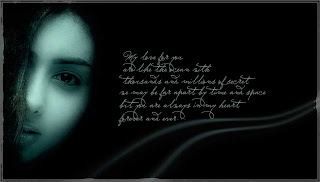 My love for you
are like the ocean with
thousands and millions of secret
we may be far apart by time and space
but you are always in my heart
forever and ever